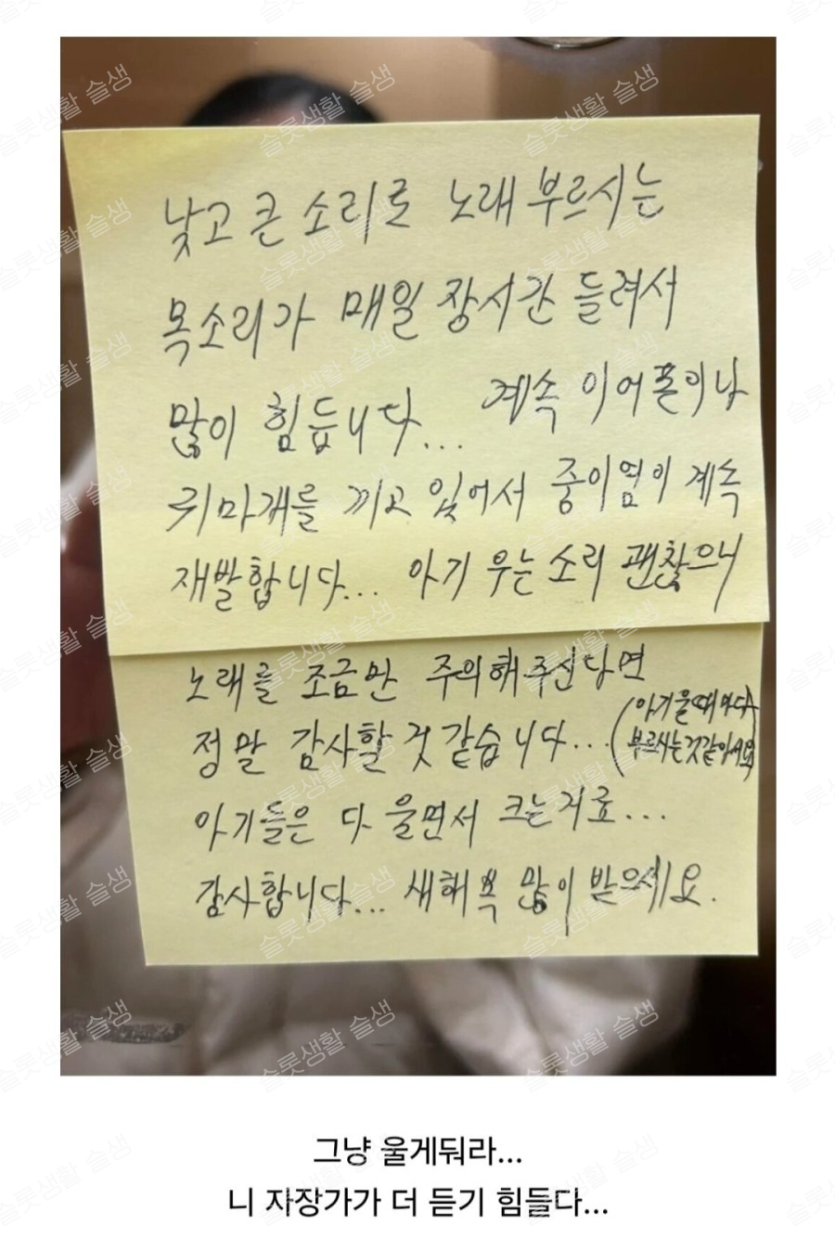 낮고 큰 소리로 노래 부르시는
목소리가 매일 장시간 들려서
많이 힘듭니다... 계속 이어폰이나
귀마개를 끼고 있어서 중이염이 계속
재발합니다... 아기 우는 소리 괜찮으니
노래를 조금만 주의해주신다면
정말 감사할 것 같습니다... (아기 울때마다
부르시는것같아서요)
아기들은 다 울면서 크는거죠...
감사합니다... 새해 복 많이 받으세요.
그냥 울게둬라...
니 자장가가 더 듣기 힘들다...
슬롯생활 슬생